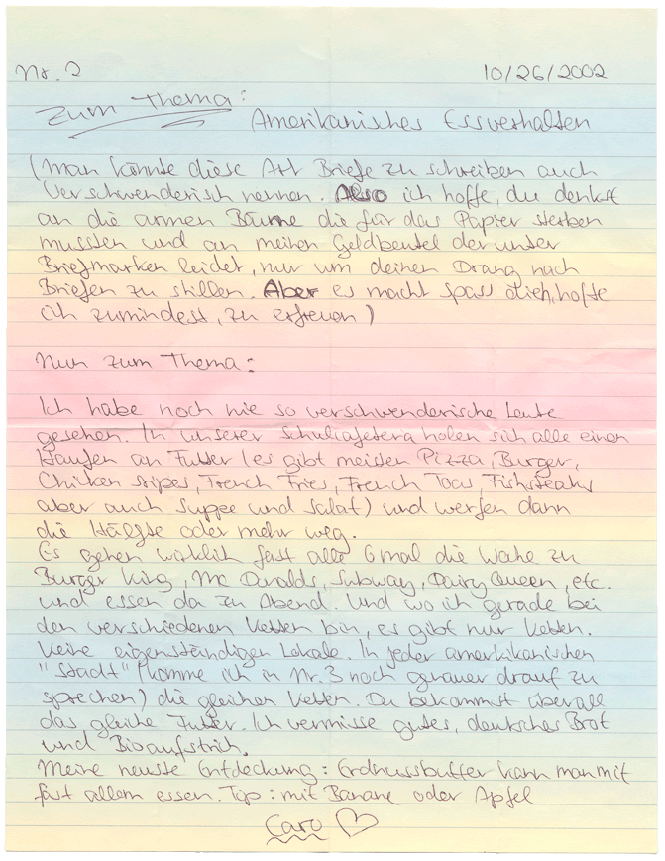 Nr. 2
10/26/2002
Zum Thema:
Amerikanisches Essverhalten
(Man könnte diese Art Briefe zu schreiben auch
Verschwenderisch nennen. Also ich hoffe, du denkst
an die armen Bäume die für das Papier sterben
mussten und an meinen Geldbeutel der unter
Briefmarken leidet, nur um deinen Drang nach
Briefen zu stillen. Aber es macht Spass Dich, hoffe
ich zumindest, zu erfreuen)
Nun zum Thema:
Ich habe noch nie so verschwenderische Leute
gesehen. In unserer Schulcafeteria holen sich alle einen
Haufen an Futter (es gibt meisten Pizza, Burger,
Chicken sripes, French Fries, French Toas, Fishsteaks
aber auch Suppe und Salat) und werfen dann
die Hälfte oder mehr weg.
Es gehen wirklich fast alle 6 mal die Woche zu
Burger King, Mc Donalds, Subway, Dairy Queen, etc.
und essen da zu Abend. Und wo ich gerade bei
den verschiedenen Ketten bin, es gibt nur Ketten.
Keine eigenständigen Lokale. In jeder amerikanischen
"Stadt" (komme ich in Nr. 3 noch genauer drauf zu
sprechen) die gleichen Ketten. Du bekommst überall
das gleiche Futter. Ich vermisse gutes, deutsches Brot
und Bioaufstrich.
Meine neuste Entdeckung: Erdnussbutter kann man mit
fast allem essen. Top: mit Banane oder Apfel
Caro